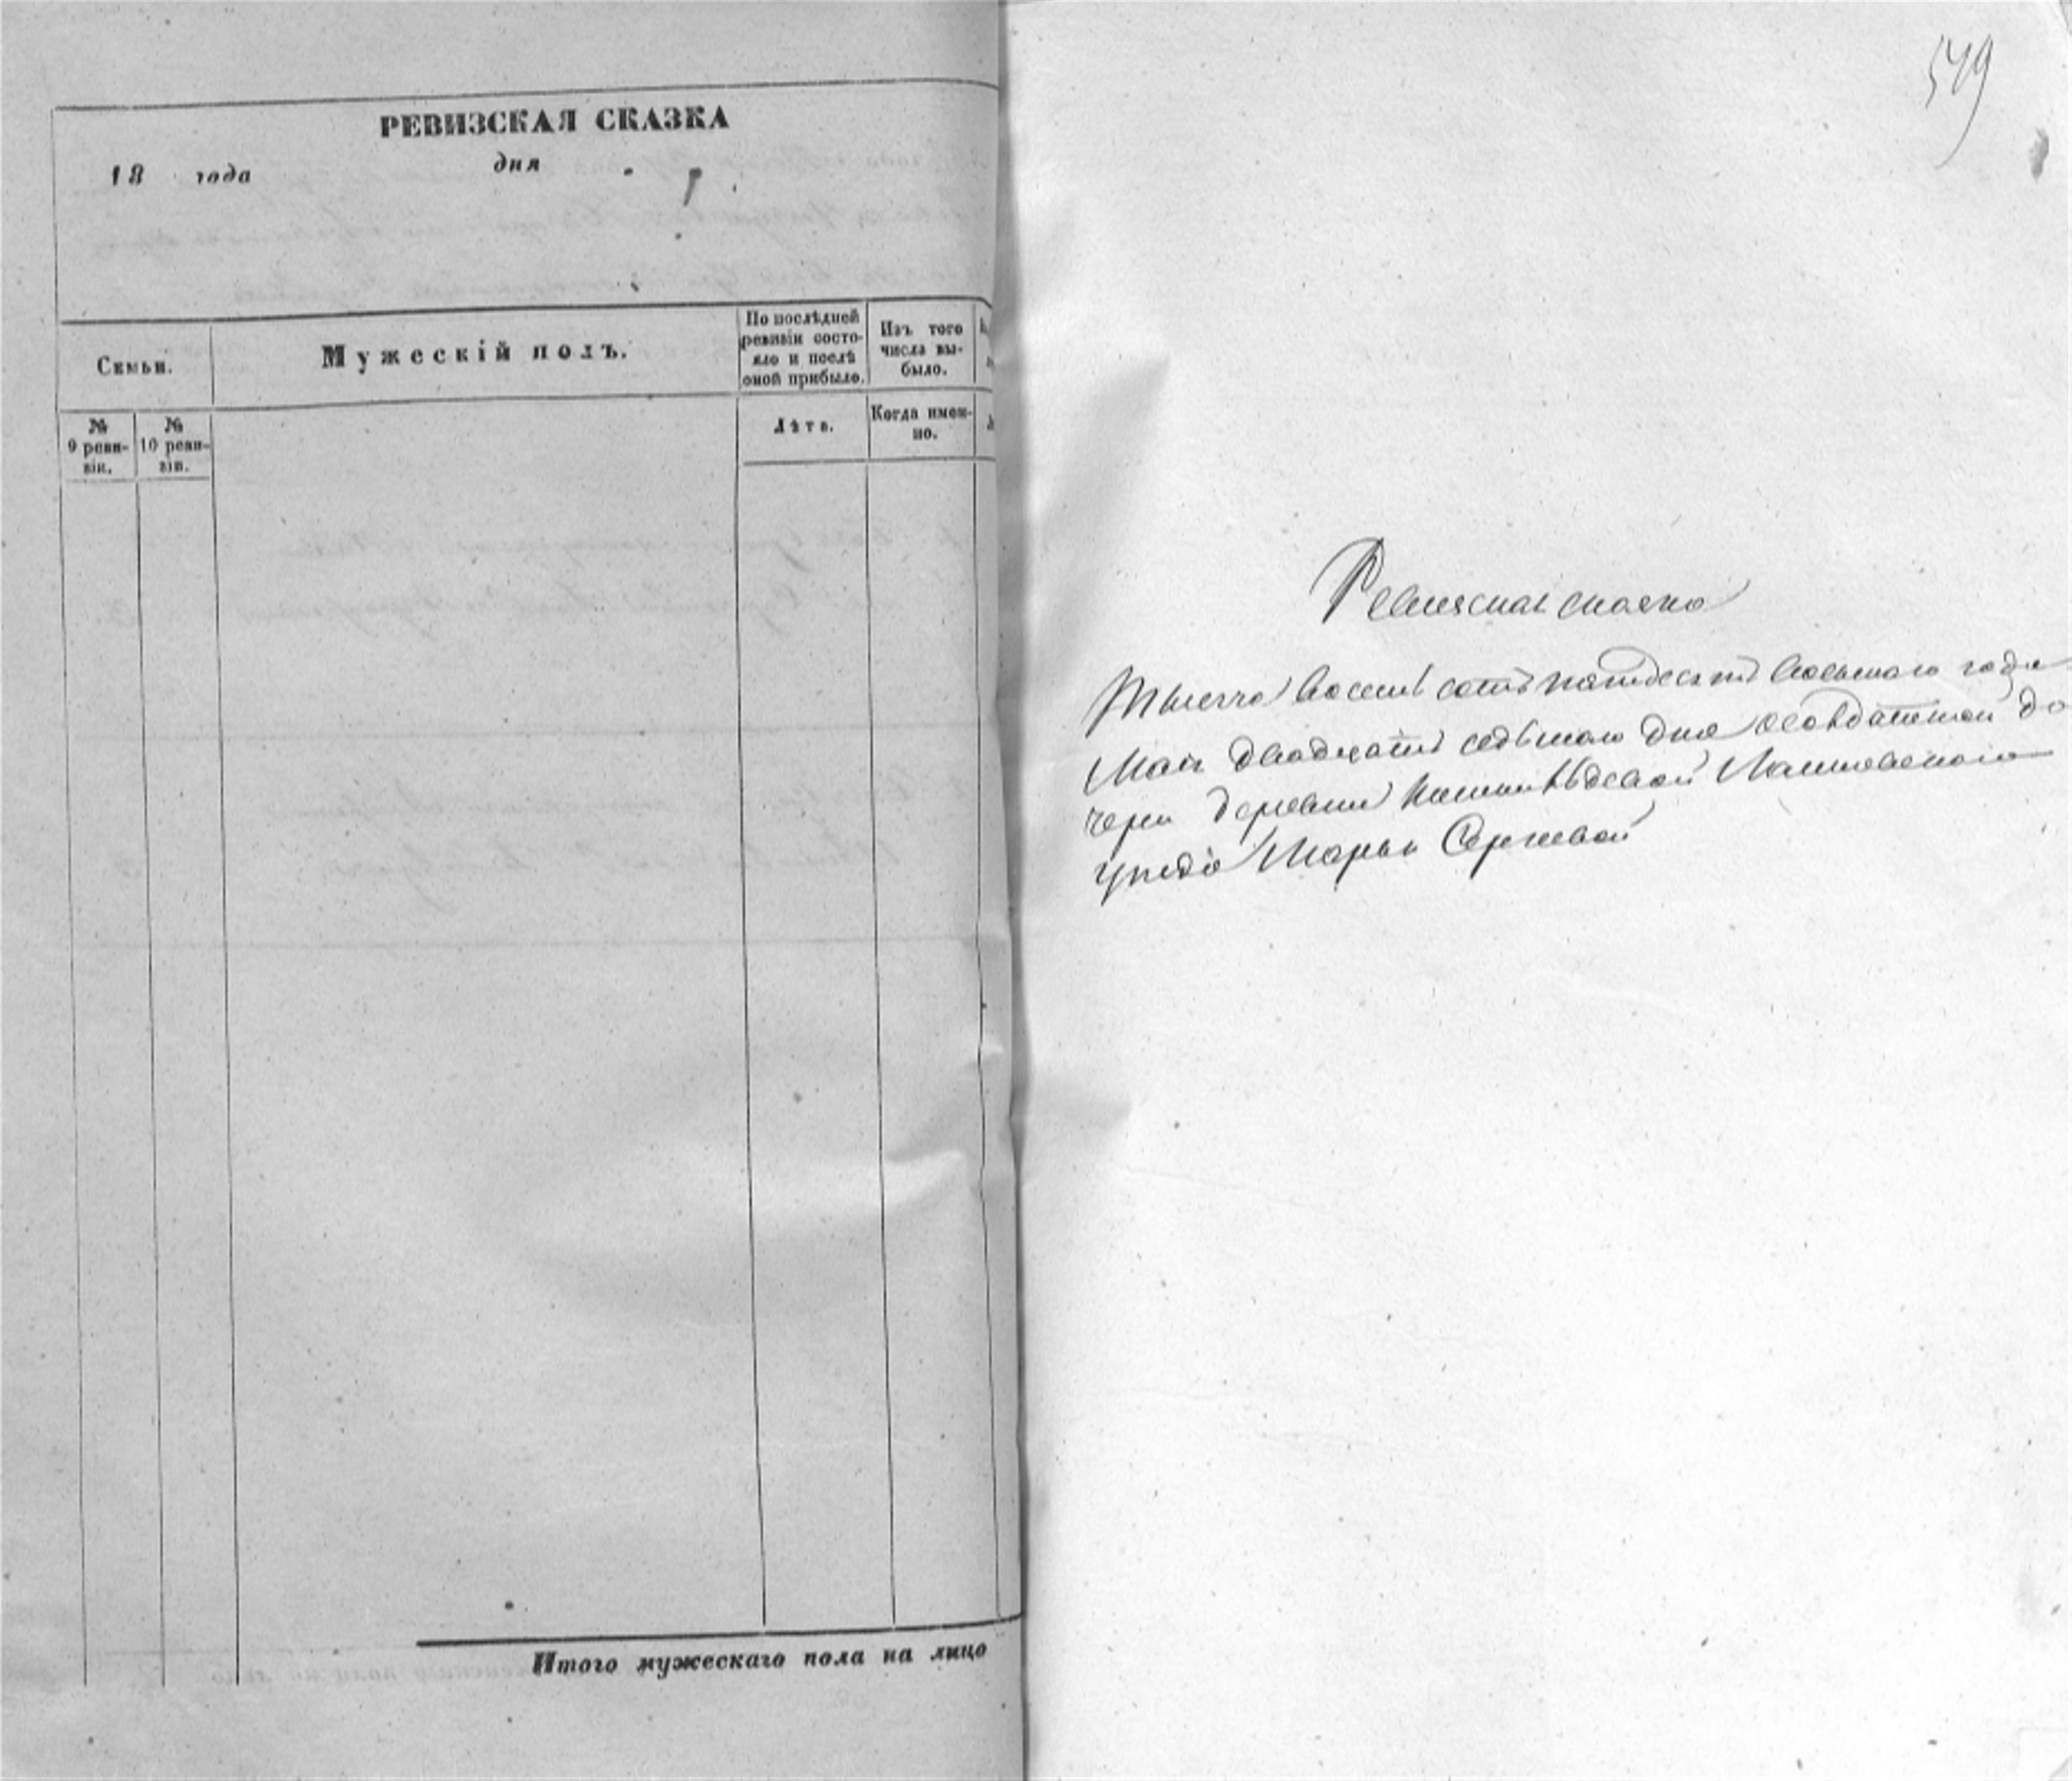 РЕВИЗСКАЯ СКАЗКА
18 года дня
Семьи.
Мужескій полъ.
По послѣдней
ревизіи состо-
яло и послѣ
оной прибыло.
Изъ того
числа вы-
было.
№
9 реви-
зіи.
№
10 реви-
зіи.
Лѣта.
Когда имен-
но.
Итого мужескаго пола на лицо
519
Ревизская сказка
Тысяча восемь сотъ пятдесятъ восьмого года
Мая двадцать седьмого дня солдатской до
чери деревни Лаишевского
уезда Марьи Сергеевой